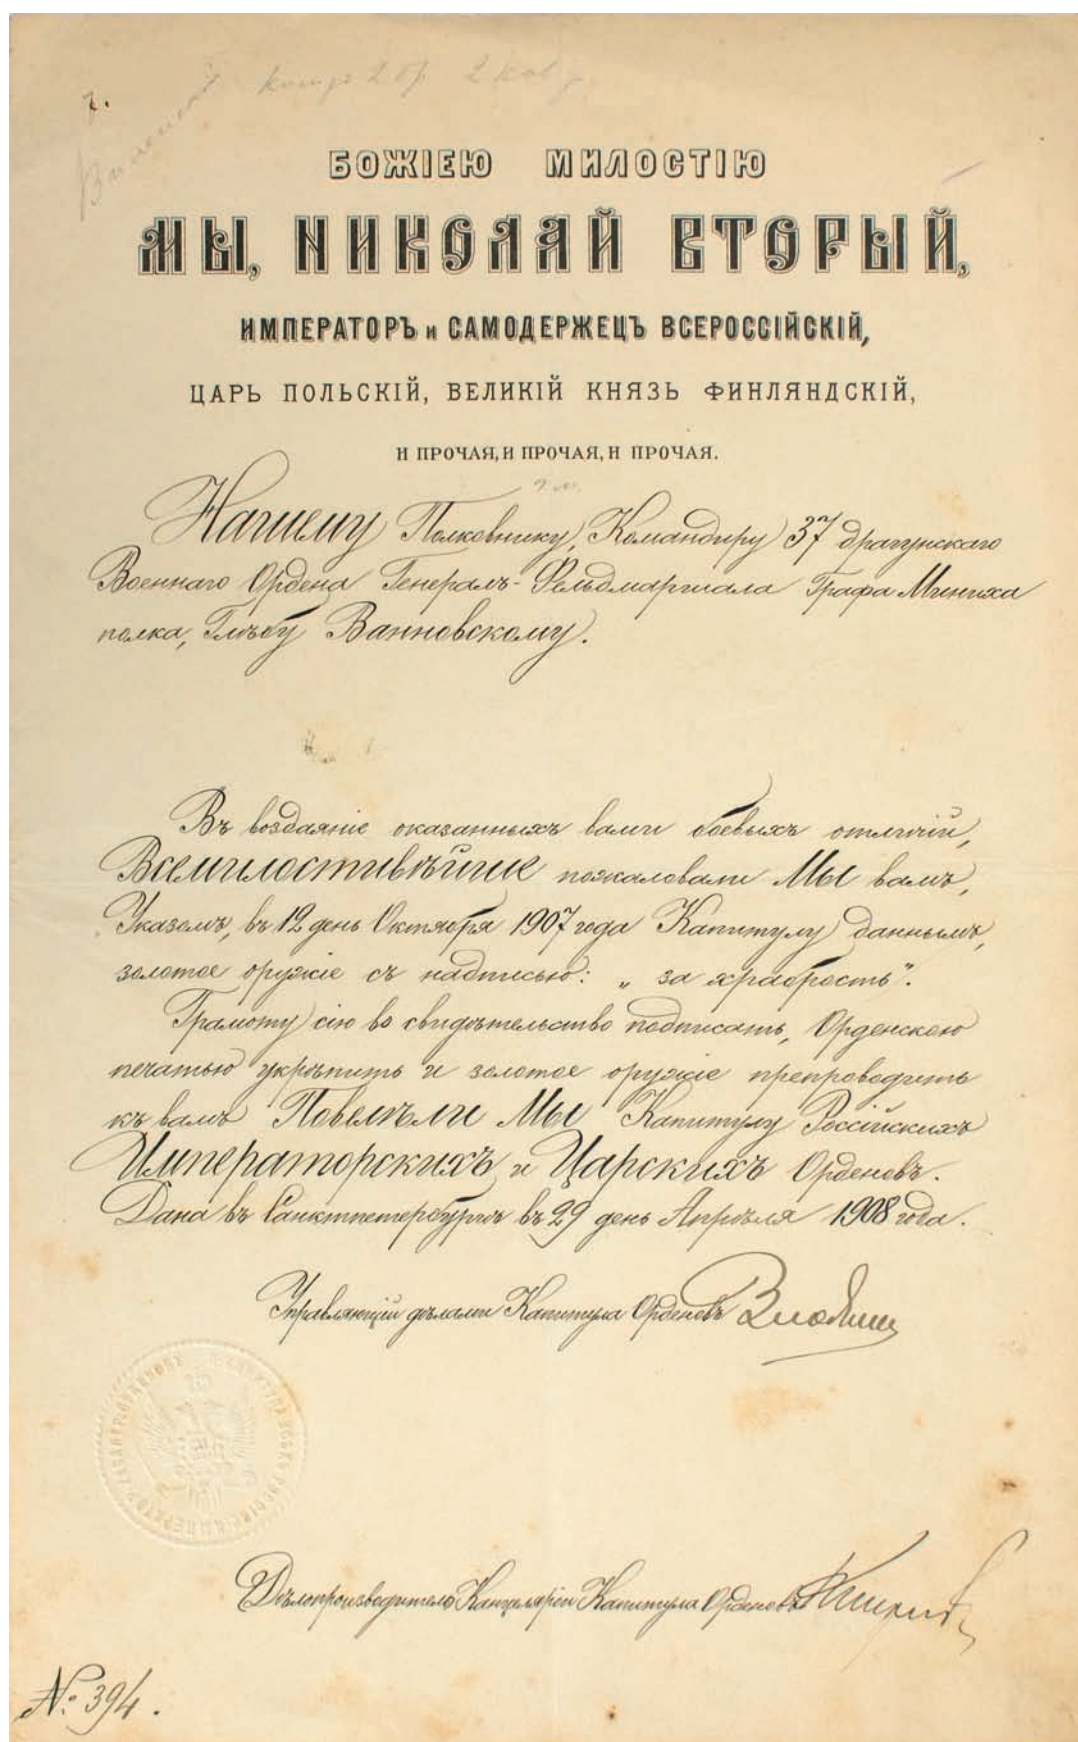 7.
БОЖІЕЮ МИЛОСТІЮ
МЫ, НИКОЛАЙ ВТОРЫЙ,
ИМПЕРАТОРЪ и САМОДЕРЖЕЦЪ ВСЕРОССІЙСКІЙ,
ЦАРЬ ПОЛЬСКІЙ, ВЕЛИКІЙ КНЯЗЬ ФИНЛЯНДСКІЙ,
И ПРОЧАЯ, И ПРОЧАЯ, И ПРОЧАЯ.
Нашему Полковнику, Командиру 37 драгунскаго
Военнаго Ордена Генералъ-Фельдмаршала Графа Миниха
полка, Глѣбу Ванновскому.
Въ воздаяніе оказанныхъ вами боевыхъ отличій,
Всемилостивѣйше пожаловали Мы вамъ,
Указомъ, въ 12 день Октября 1907 года Капитулу даннымъ,
золотое оружіе съ надписью: „за храбрость".
Грамоту сію во свидѣтельство подписать, Орденскою
печатью укрѣпить и золотое оружіе препроводить
къ вамъ Повелѣли Мы Капитулу Россійскихъ
Императорскихъ и Царскихъ Орденовъ.
Дана въ Санктпетербургѣ въ 29 день Апрѣля 1908 года.
Управляющій дѣлами Капитула Орденовъ
Дѣлопроизводитель Канцеляріи Капитула Орденовъ
№ 394.